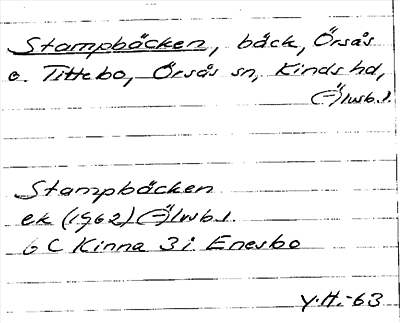 Stampbäcken, bäck, Örsås
o. Tittebo, Örsås sn, Kinds hd,
(-"-)lvsb.l.
Stampbäcken
ek (1962) (-"-)lvsb.l.
6 C Kinna 3 i Enesbo
Y.H.-63